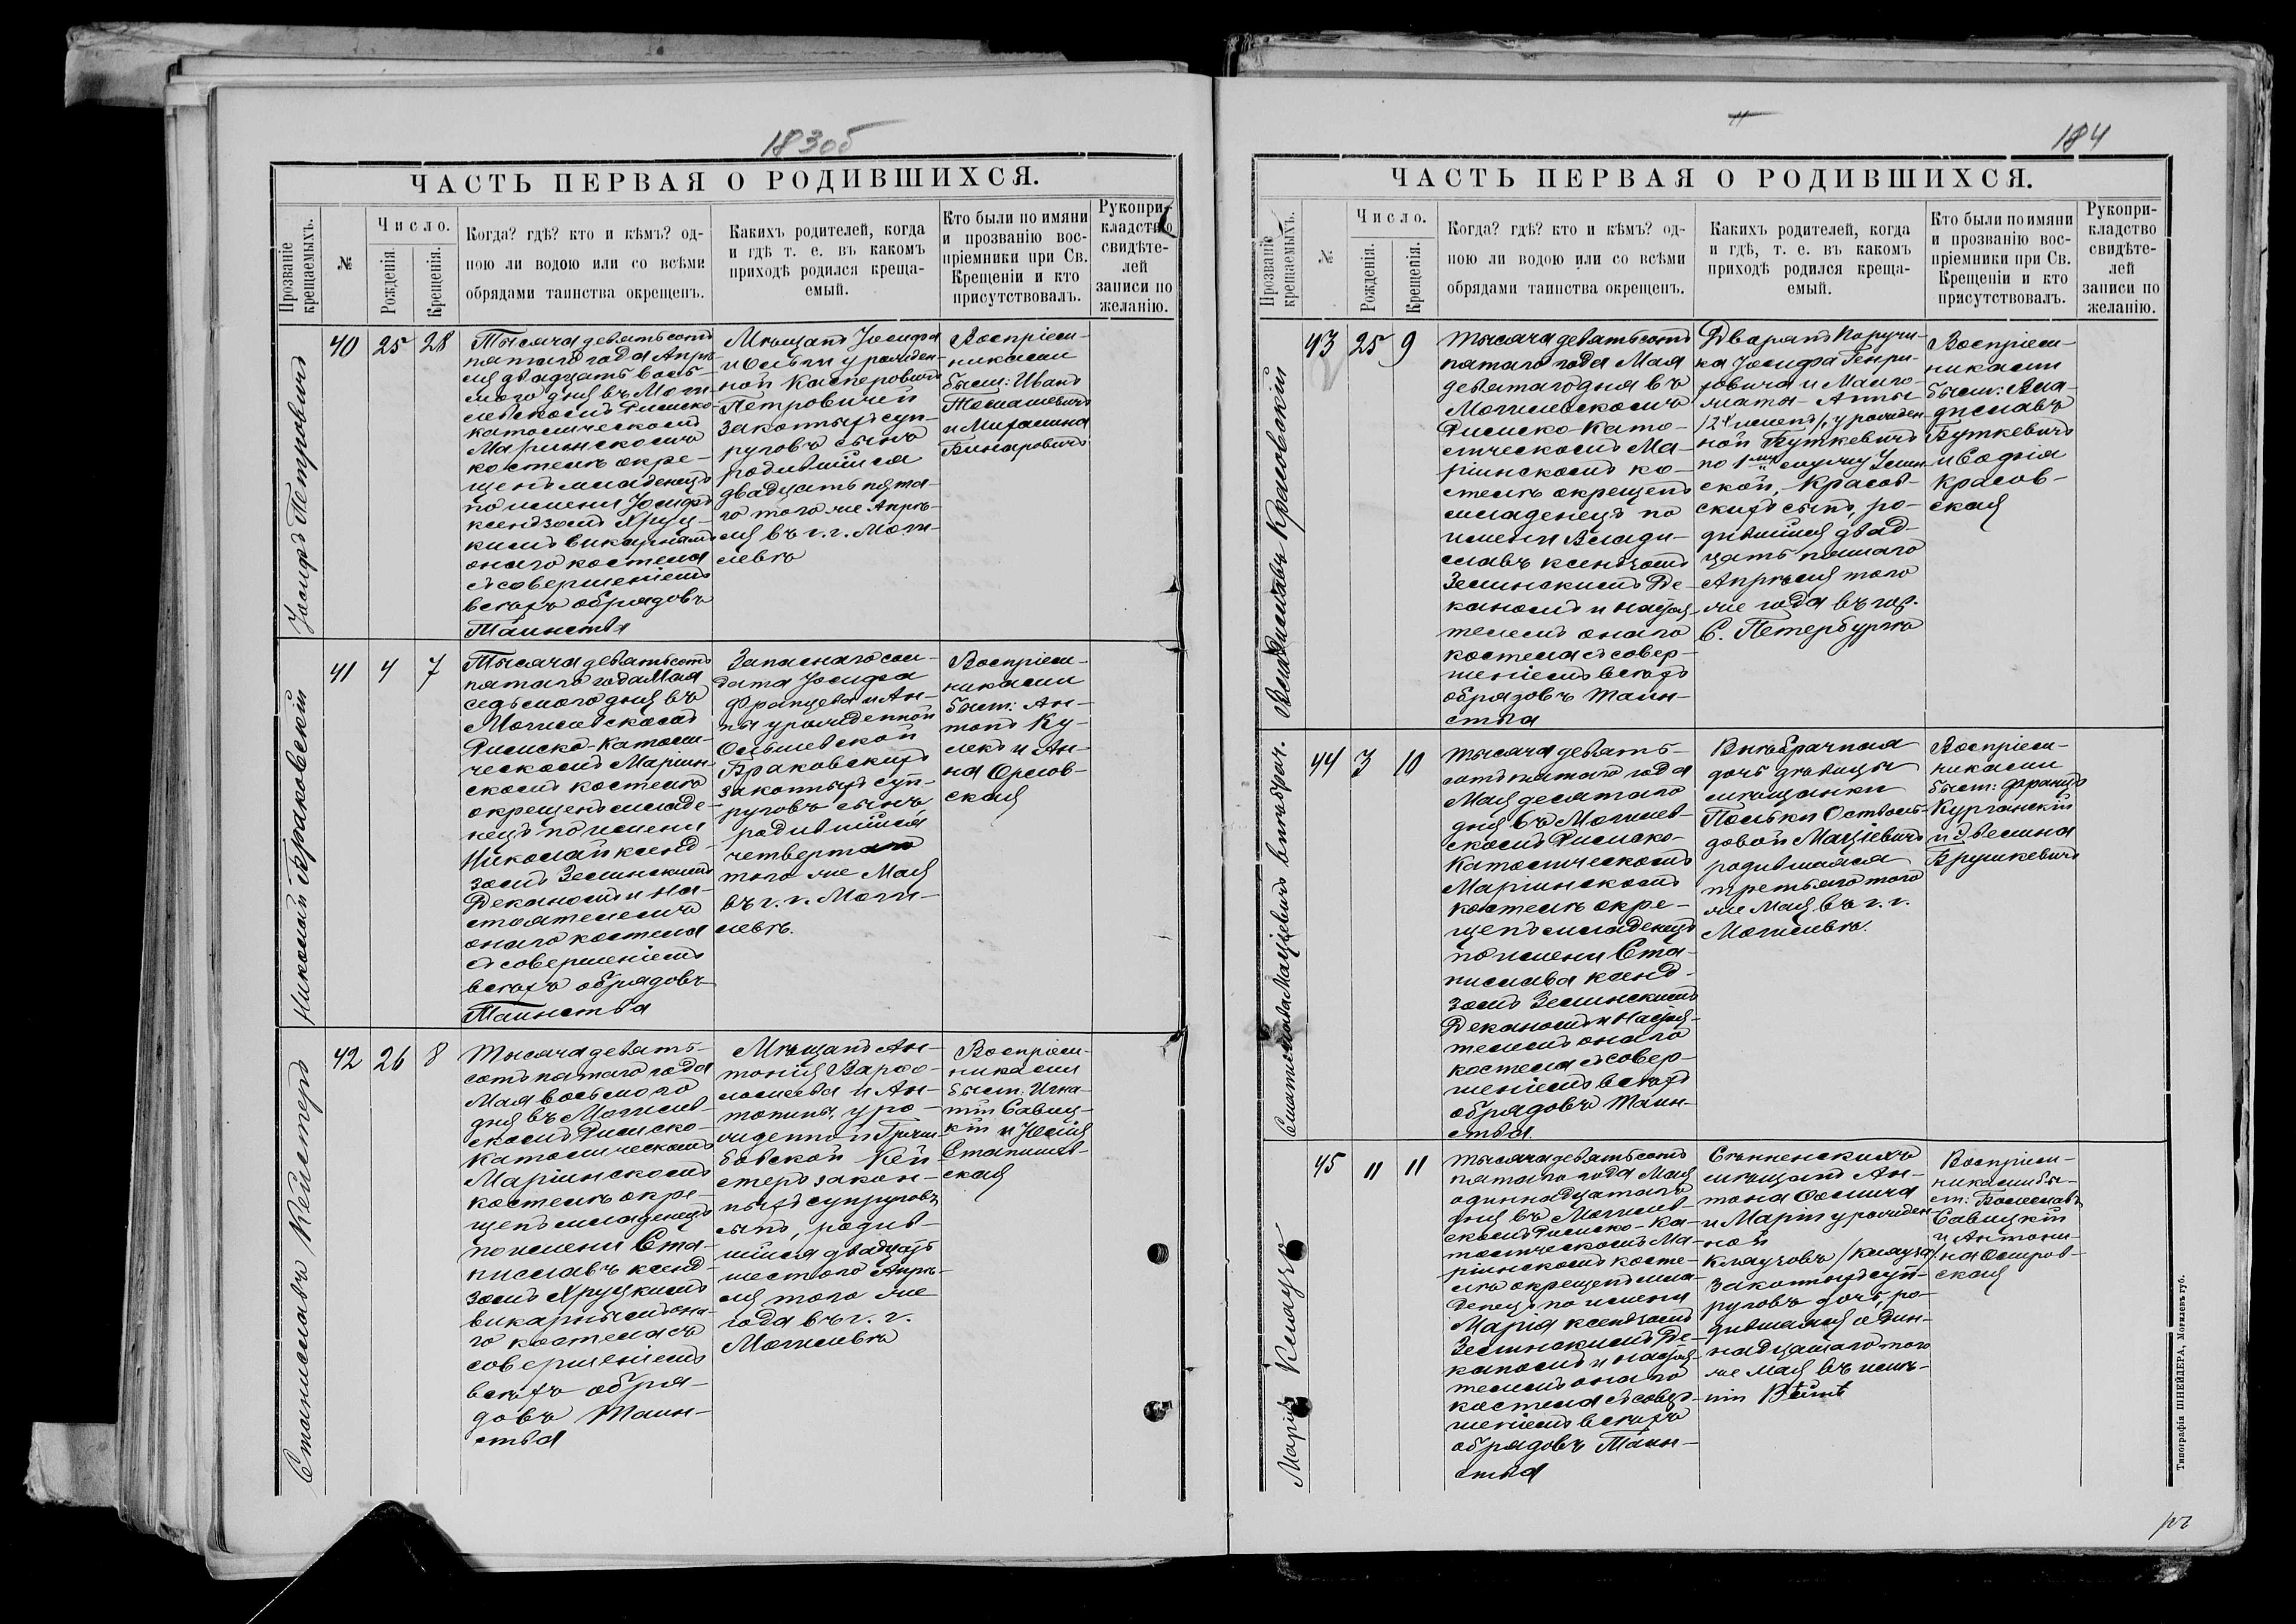 183об
ЧАСТЬ ПЕРВАЯ О РОДИВШИХСЯ.
Прозваніе крещаемыхъ.
№
Число.
Рожденія.
Крещенія.
Когда? гдѣ? кто и кѣмъ? од-
ною ли водою или со всѣми
обрядами таинства окрещенъ.
Какихъ родителей, когда
и гдѣ т. е. въ какомъ
приходѣ родился креща-
емый.
Кто были по имяни
и прозванію вос-
пріемники при Св.
Крещеніи и кто
присутствовалъ.
Рукопри-
кладство
свидѣте-
лей
записи по
желанію.
Іосифъ Петровичъ
40
25
28
Тысяча девятьсотъ
пятаго года Апрѣ-
ля двадцать вось-
мого дня въ Моги-
левскомъ Римско-
католическомъ
Маріинскомъ
костелѣ окре-
щенъ младенецъ
по имени Іосифъ
ксендзомъ Хруц-
кимъ викарнымъ
онаго костела
съ совершеніемъ
всѣхъ обрядовъ
Таинства
Мѣщанъ Іосифа
и Ольги урожден-
ной Касперовичъ
Петровичей
законныхъ суп-
руговъ сынъ
родившійся
двадцать пята-
го того же Апрѣ-
ля въ г. г. Моги-
левѣ
Воспріем-
никами
были: Иванъ
Томашевичъ
и Михалина
Бинаровичъ
Николай Браковскій
41
4
7
Тысяча девятьсотъ
пятаго года Мая
седьмого дня въ
Могилевскомъ
Римско-Католи-
ческомъ Маріин-
скомъ костелѣ
окрещенъ младе-
нецъ по имени
Николай ксенд-
зомъ Зелинскимъ
Деканомъ и На-
стоятелемъ
онаго костела
съ совершеніемъ
всѣхъ обрядовъ
Таинства
Запаснаго сол-
дата Іосифа
Францева и Ан-
ны урожденной
Ольшевской
Браковскихъ
законныхъ суп-
руговъ сынъ
родившійся
четвертаго
того же Мая
въ г. г. Моги-
левѣ.
Воспріем-
никами
были: Ан-
тонъ Ку-
лекъ и Ан-
на Орлов-
ская
Станиславъ Кейстеръ
42
26
8
Тысяча девять-
сотъ пятаго года
Мая восьмого
дня въ Могилев-
скомъ Римско-
Католическомъ
Маріинскомъ
костелѣ окре-
щенъ младенецъ
по имени Ста-
ниславъ ксенд-
зомъ Хруцкимъ
викарнымъ она-
го костела съ
совершеніемъ
всѣхъ обря-
довъ Таин-
ства
Мѣщанъ Ан-
тонія Варфо-
ломеева и Ан-
тонины, уро-
жденной
бовской Кей-
стеръ закон-
ныхъ супруговъ
сынъ, родив-
шійся двадцать
шестого Апрѣ-
ля того же
года въ г. г.
Могилевѣ
Воспріем-
никами
были: Игна-
тій Савиц-
кій и Юлія
Станишев-
ская
184
ЧАСТЬ ПЕРВАЯ О РОДИВШИХСЯ.
Прозваніе крещаемыхъ.
№
Число.
Рожденія.
Крещенія.
Когда? гдѣ? кто и кѣмъ? од-
ною ли водою или со всѣми
обрядами таинства окрещенъ.
Какихъ родителей, когда
и гдѣ, т. е. въ какомъ
приходѣ родился креща-
емый.
Кто были по имяни
и прозванію вос-
пріемники при Св.
Крещеніи и кто
присутствовалъ.
Рукопри-
кладство
свидѣте-
лей
записи по
желанію.
Владиславъ Красовскій
43
25
9
Тысяча девятьсотъ
пятаго года Мая
девятаго дня въ
Могилевскомъ
Римско-Като-
лическомъ Ма-
ріинскомъ ко-
стелѣ окрещенъ
младенецъ по
имени Влади-
славъ ксендзомъ
Зелинскимъ Де-
каномъ и Настоя-
телемъ онаго
костела съ совер-
шеніемъ всѣхъ
обрядовъ Таин-
ства
Дворянъ Поручи-
ка Іосифа Генри-
ховича и Малго-
жаты-Анны
/2ъ именъ/, урожден-
ной Буткевичъ
по 1му мужу
ской, Красов-
скихъ сынъ, ро-
дившійся двад-
цать пятаго
Апрѣля того
же года въ гор.
С. Петербургѣ
Воспріем-
никами
были: Вла-
диславъ
Буткевичъ
и Софія
Красов-
ская
Станислава Мацѣевичъ внѣбрач.
44
3
10
Тысяча девять-
сотъ пятаго года
Мая десятаго
дня въ Могилев-
скомъ Римско-
Католическомъ
Маріинскомъ
костелѣ окре-
щенъ младенецъ
по имени Ста-
нислава ксенд-
зомъ Зелинскимъ
Деканомъ и Настоя-
телемъ онаго
костела съ совер-
шеніемъ всѣхъ
обрядовъ Таин-
ства.
Внѣбрачная
дочь дѣвицы
мѣщанки
Польки
довой Мацѣевичъ
родившаяся
третьяго того
же Мая въ г. г.
Могилевѣ.
Воспріем-
никами
были: Францъ
Курганскій
и Эвелина
Брушкевичъ
Марія Клаузо
45
11
11
Тысяча девятьсотъ
пятаго года Мая
одиннадцатаго
дня въ Могилев-
скомъ Римско-Ка-
толическомъ Ма-
ріинскомъ косте-
лѣ окрещенъ мла-
денецъ по имени
Марія ксендзомъ
Зелинскимъ Де-
каномъ и Настоя-
телемъ онаго
костела съ совер-
шеніемъ всѣхъ
обрядовъ Таин-
ства
Сѣнненскихъ
мѣщанъ Ан-
тона
и Маріи урожден-
ной
Клаузовъ /Клаузо/
законныхъ суп-
руговъ дочь, ро-
дившаяся один-
надцатаго того
же Мая въ имѣ-
ніи
Воспріем-
никами бы-
ли: Болеславъ
Савицкій
и Антони-
на Остров-
ская
Типографія ШНЕЙДЕРА, Могилевъ губ.